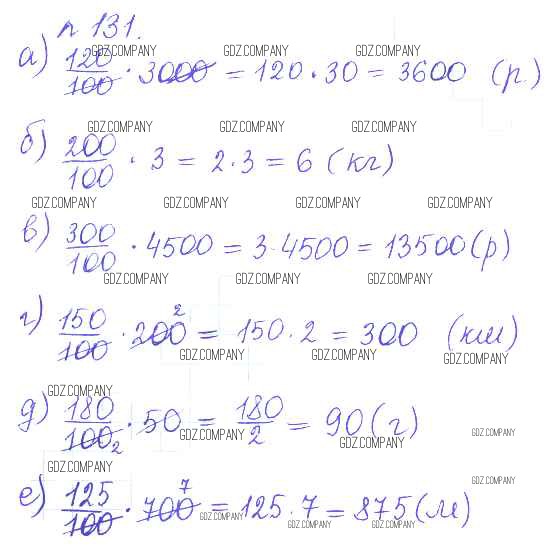 п 131.
а) 120/100 · 3000 = 120 · 30 = 3600 (р.)
б) 200/100 · 3 = 2 · 3 = 6 (кг)
в) 300/100 · 4500 = 3 · 4500 = 13500 (р)
г) 150/100 · 200 2 = 150 · 2 = 300 (км)
д) 180/100 2 · 50 = 180/2 = 90 (г)
е) 125/100 · 700 7 = 125 · 7 = 875 (м)
GDZ.COMPANY GDZ.COMPANY GDZ.COMPANY
GDZ.COMPANY GDZ.COMPANY GDZ.COMPANY
GDZ.COMPANY GDZ.COMPANY GDZ.COMPANY GDZ.COMPANY
GDZ.COMPANY GDZ.COMPANY GDZ.COMPANY
GDZ.COMPANY GDZ.COMPANY GDZ.COMPANY
GDZ.COMPANY
GDZ.COMPANY GDZ.COMPANY GDZ.COMPANY
GDZ.COMPANY GDZ.COMPANY
GDZ.COMPANY GDZ.COMPANY GDZ.COMPANY